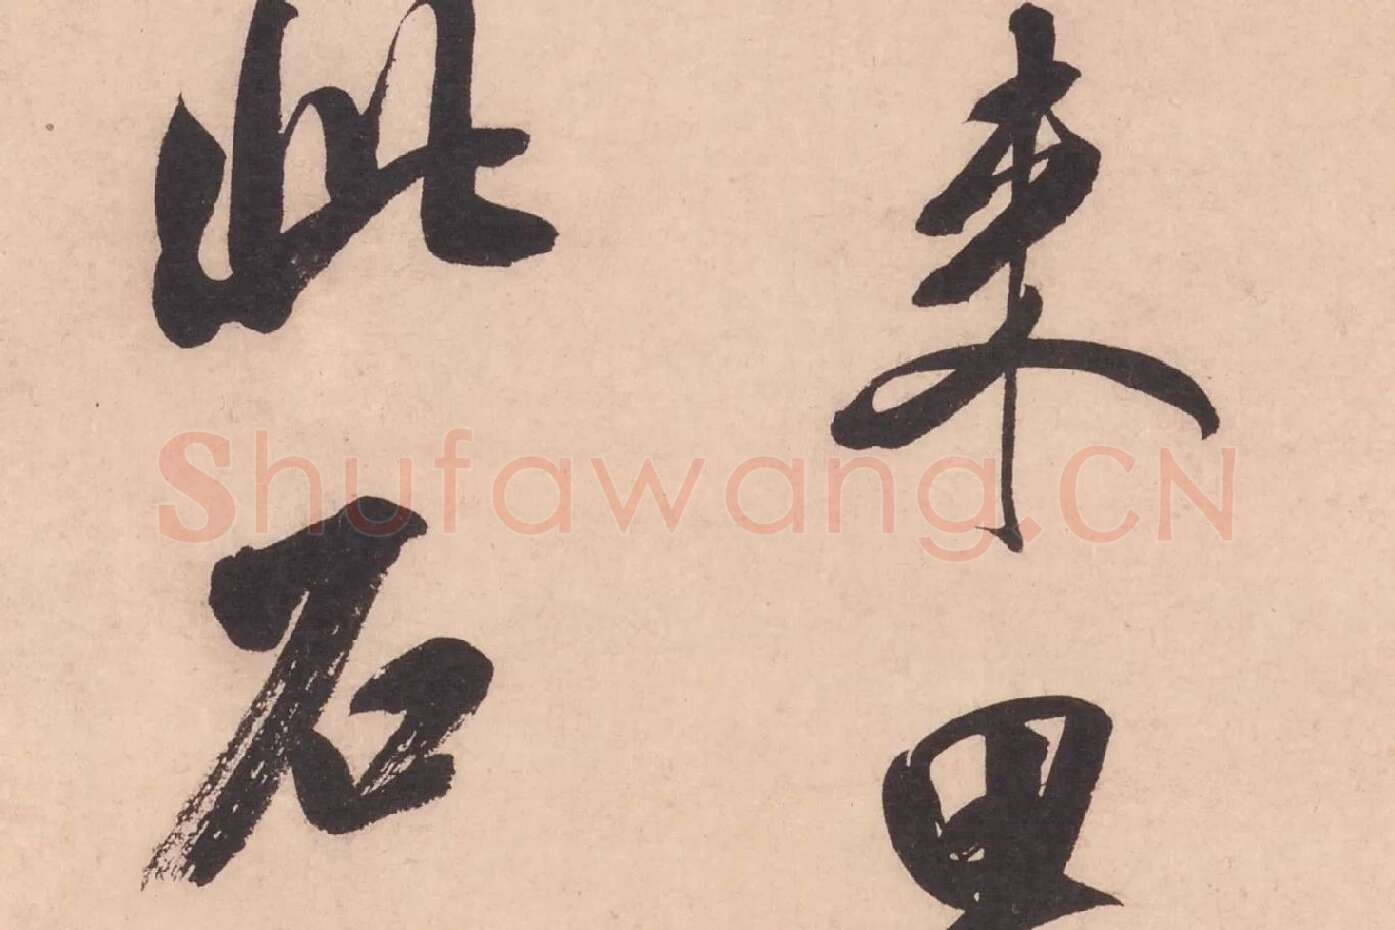 来
此石
Shufawang.CN